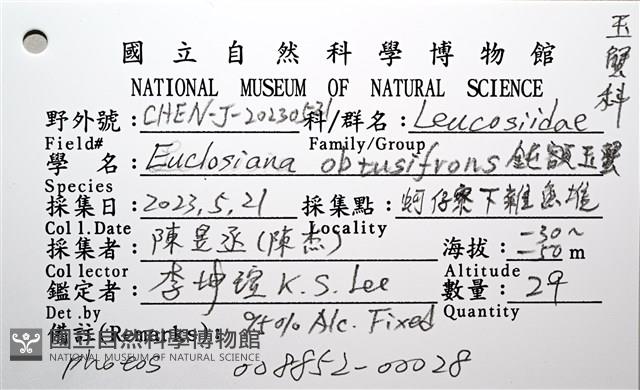 玉蟹科
國立自然科學博物館
NATIONAL MUSEUM OF NATURAL SCIENCE
野外號：CHEN-J-20230521 科/群名：Leucosiidae
Field# Family/Group
學 名：Euclosiana obtusifrons 鈍額玉蟹
Species
採集日：2023.5.21 採集點：蚵仔寮下雜魚堆
Coll.Date Locality
採集者：陳昱丞(陳杰) 海拔：-30~-50 m
Collector Altitude
鑑定者：李坤瑄 K.S. Lee 數量：29
Det.by Quantity
備註(Remarks)： 95% Alc. Fixed
國立自然科學博物館
NATIONAL MUSEUM OF NATURAL SCIENCE
photos 008852-00028